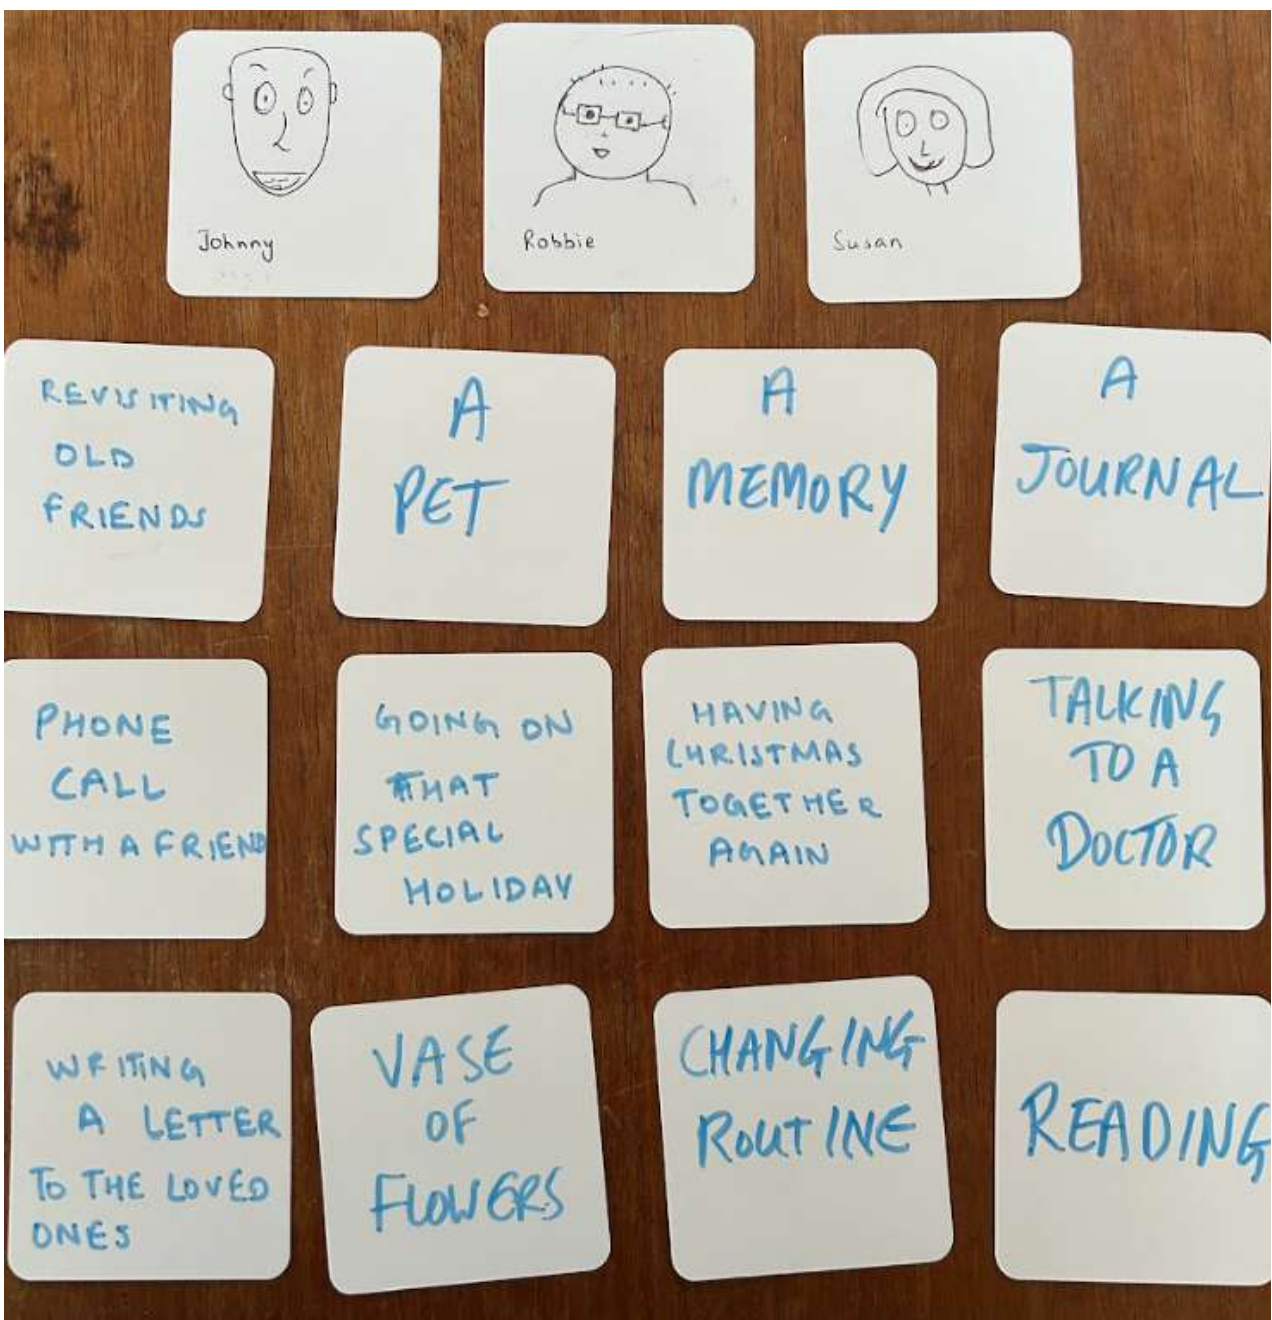 Johnny
Robbie
Susan
REVISITING
OLD
FRIENDS
A
PET
A
MEMORY
A
JOURNAL
PHONE
CALL
WITH A FRIEND
GOING ON
THAT
SPECIAL
HOLIDAY
HAVING
CHRISTMAS
TOGETHER
AGAIN
TALKING
TO A
DOCTOR
WRITING
A LETTER
TO THE LOVED
ONES
VASE
OF
FLOWERS
CHANGING
ROUTINE
READING